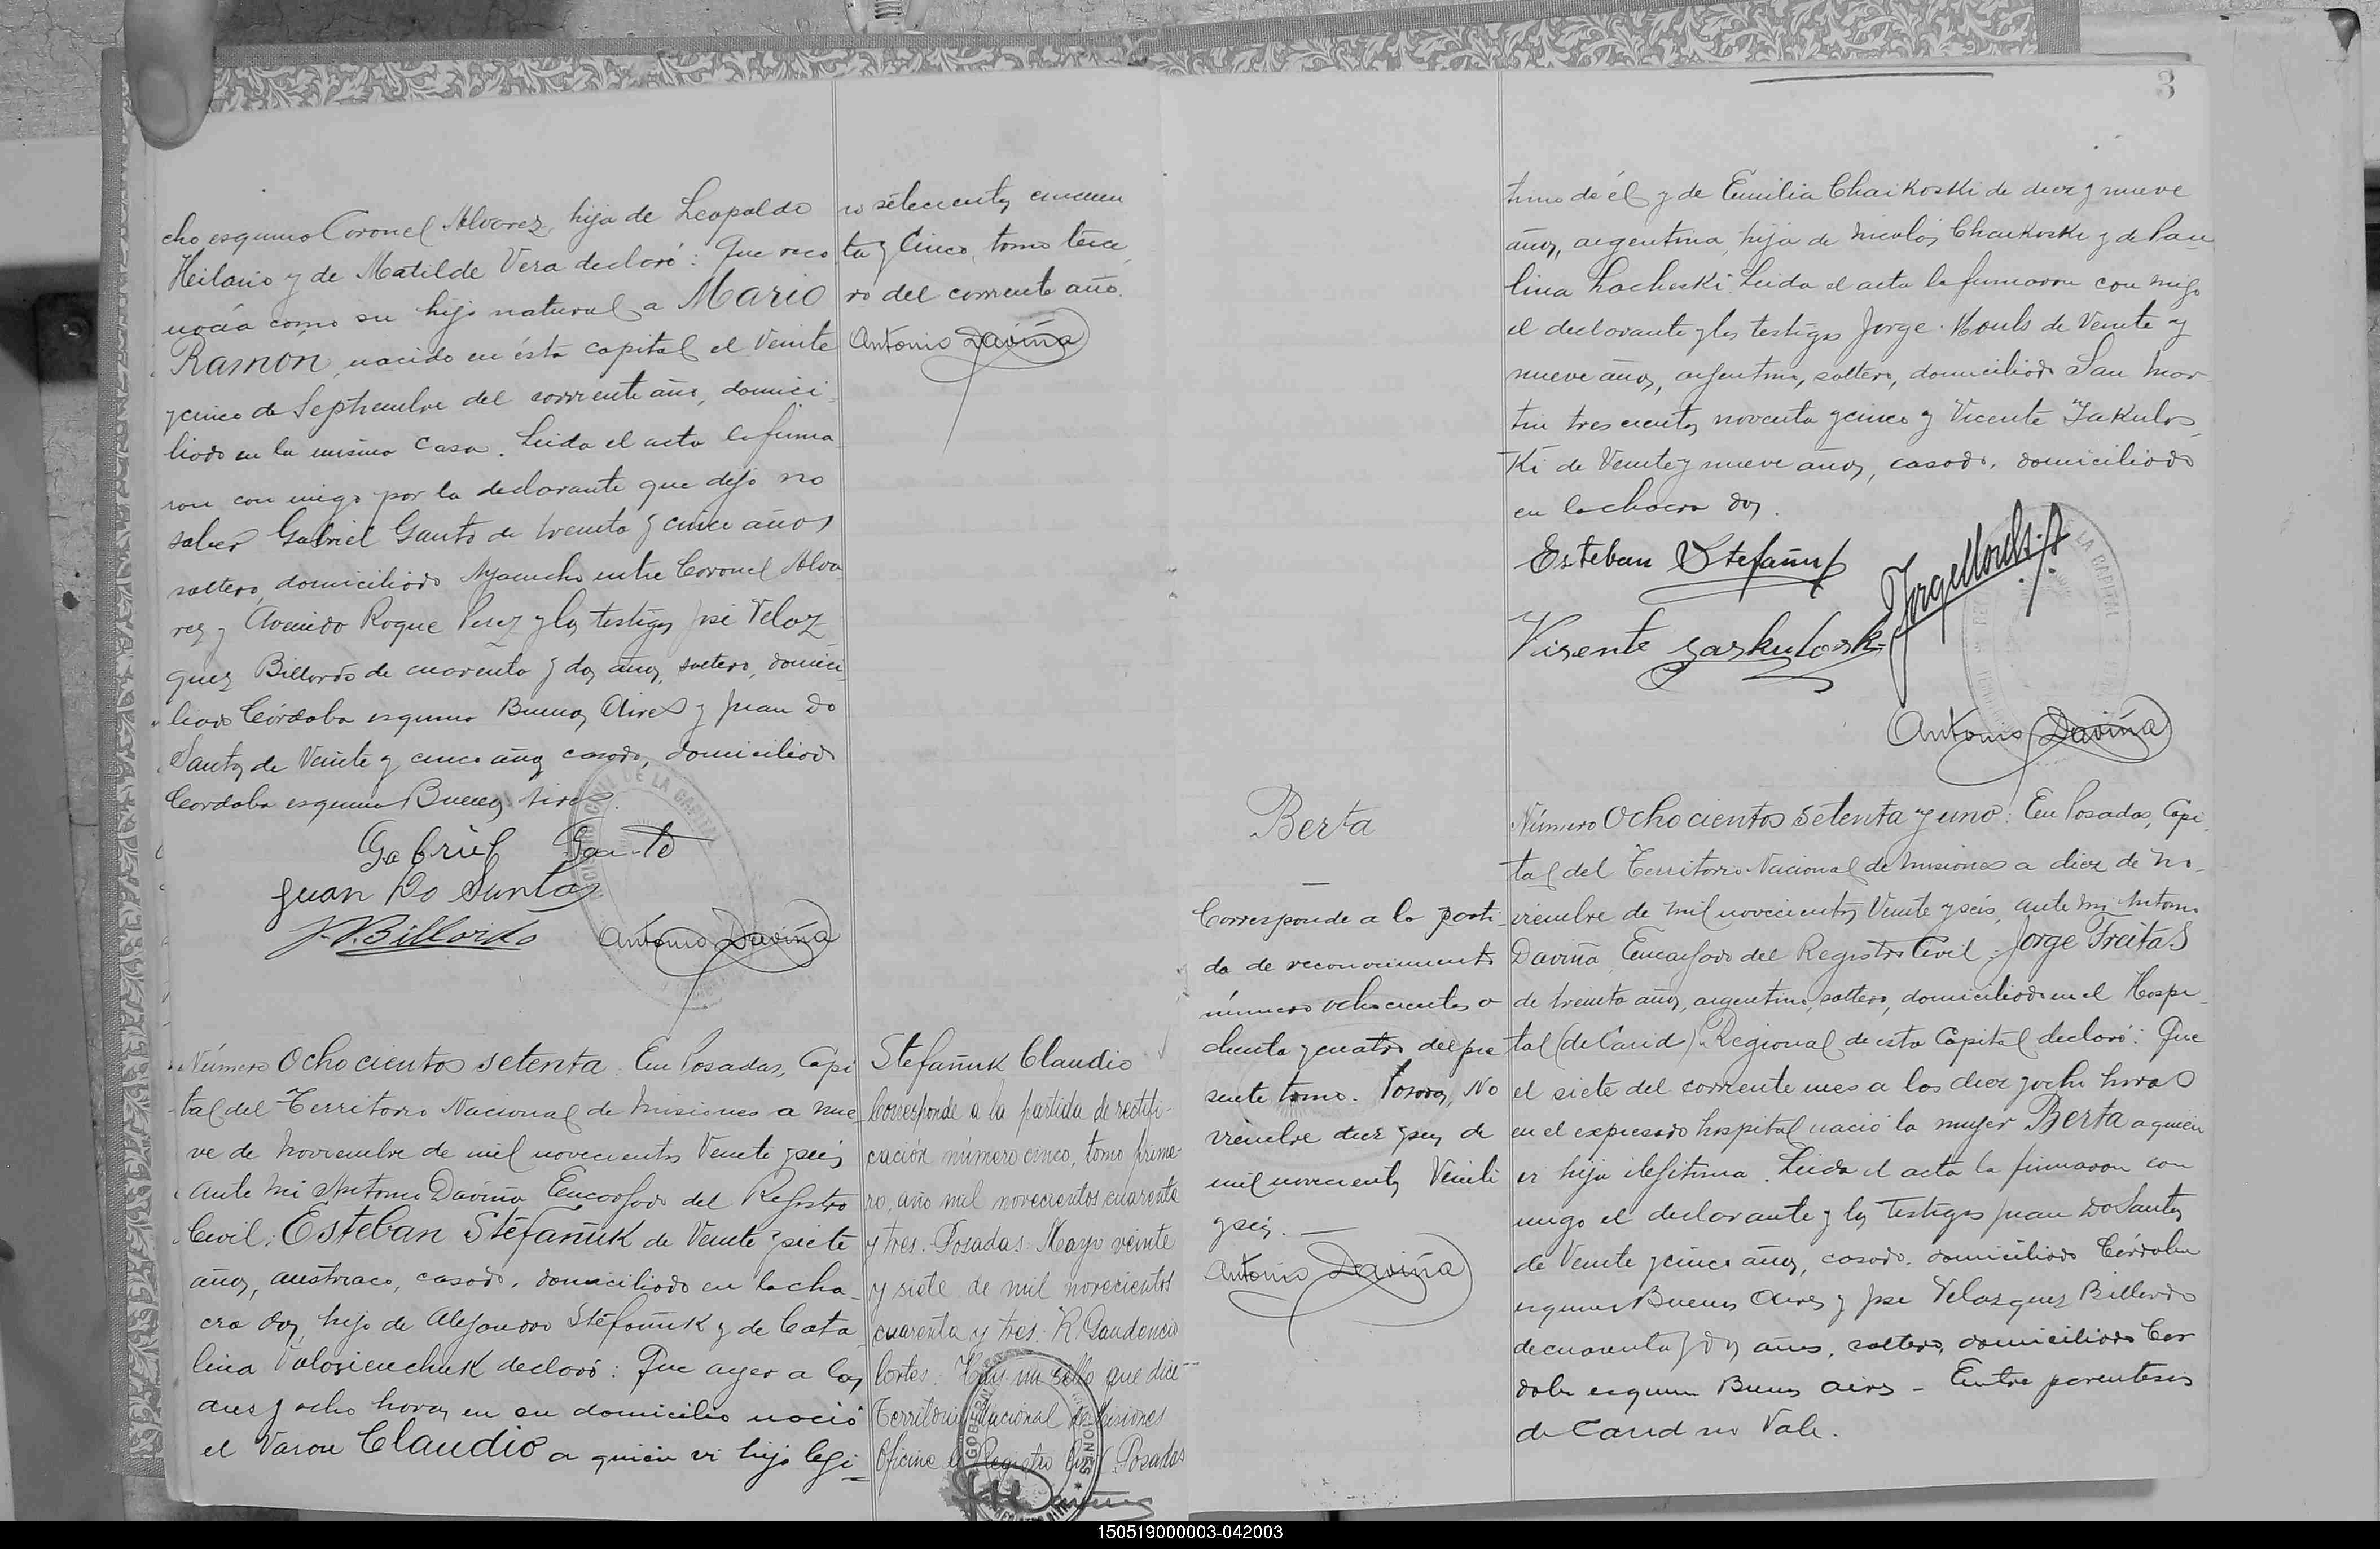 cho esquina Coronel Alvarez, hija de Leopoldo
Hilario y de Matilde Vera declaró: Que reco
nocía como su hijo natural a Mario
Ramón, nacido en ésta capital el Veinte
y cinco de Septiembre del corriente año, domici
liado en la misma casa. Leida el acta la firma
ron con migo por la declarante que dijo no
saber Gabriel Gauto de treinta y cinco años
soltero, domiciliado Ayacucho entre Coronel Alva
rez y Avenida Roque Perez y los testigos José Velaz
quez Billordo de cuarenta y dos años, soltero, domici
liado Córdoba esquina Buenos Aires y Juan Do
Santos de Veinte y cinco años casado, domiciliado
Cordoba esquina Buenos Aires.
Gabriel Gauto
Juan Do Santos
J. V. Billordo
Antonio Daviña
no setecientos cincuen
ta y Cinco, tomo terce
ro del corriente año.
Antonio Daviña
Número Ochocientos setenta: En Posadas, Capi
tal del Territorio Nacional de Misiones a nue
ve de Noviembre de mil novecientos Veinte y seis
ante mi Antonio Daviña Encargado del Registro
Civil: Esteban Stefañuk de Veinte y siete
años, austriaco, casado, domiciliado en la cha
cra dos, hijo de Alejandro Stefañuk y de Cata
lina Valosienchuk declaró: Que ayer a las
diez y ocho horas en su domicilio nació
el Varon Claudio a quien vi hijo legi-
Stefañuk Claudio
Corresponde a la partida de rectifi-
cación número cinco, tomo prime-
ro, año mil novecientos cuarenta
y tres. Posadas: Mayo veinte
y siete de mil novecientos
cuarenta y tres. R. Gaudencio
Cortes. Hay un sello que dice
Territorio Nacional de Misiones
Oficina de Registro Civil Posadas
3
timo de él y de Emilia Chaikoski de diez y nueve
años, argentina, hija de Nicolás Chaikoski y de Pau
lina Lacheski. Leida el acta la firmaron con migo
el declarante y los testigos Jorge Mouls de Veinte y
nueve años, argentino, soltero, domiciliado San Mar
tin trescientos noventa y cinco y Vicente Yakulos
Ki de Veinte y nueve años, casado, domiciliado
en la chacra dos.
Esteban Stefañuk
Jorge Mouls
Visente yaskuloski
Antonio Daviña
Berta
Corresponde a la parti
da de reconocimiento
número ochocientos o
chenta y cuatro del pre
sente tomo. Posadas, No
viembre diez y seis de
mil novecientos Veinti
y seis.
Antonio Daviña
Número Ochocientos setenta y uno: En Posadas, Capi
tal del Territorio Nacional de Misiones a diez de No-
viembre de mil novecientos Veinte y seis, ante mi Antonio
Daviña Encargado del Registro Civil: Jorge Freitas
de treinta años, argentino, soltero, domiciliado en el Hospi
tal (de Carid) Regional de esta Capital declaró: Que
el siete del corriente mes a las diez y ocho horas
en el expresado hospital nació la mujer Berta a quien
vi hija ilegitima. Leida el acta la firmaron con
migo el declarante y los testigos Juan Do Santos
de Veinte y cinco años, casado, domiciliado Córdoba
esquina Buenos Aires y José Velazquez Billordo
de cuarenta y dos años, soltero, domiciliado Cor
doba esquina Buenos Aires - Entre parentesis
de Carid no Vale.
150519000003-042003